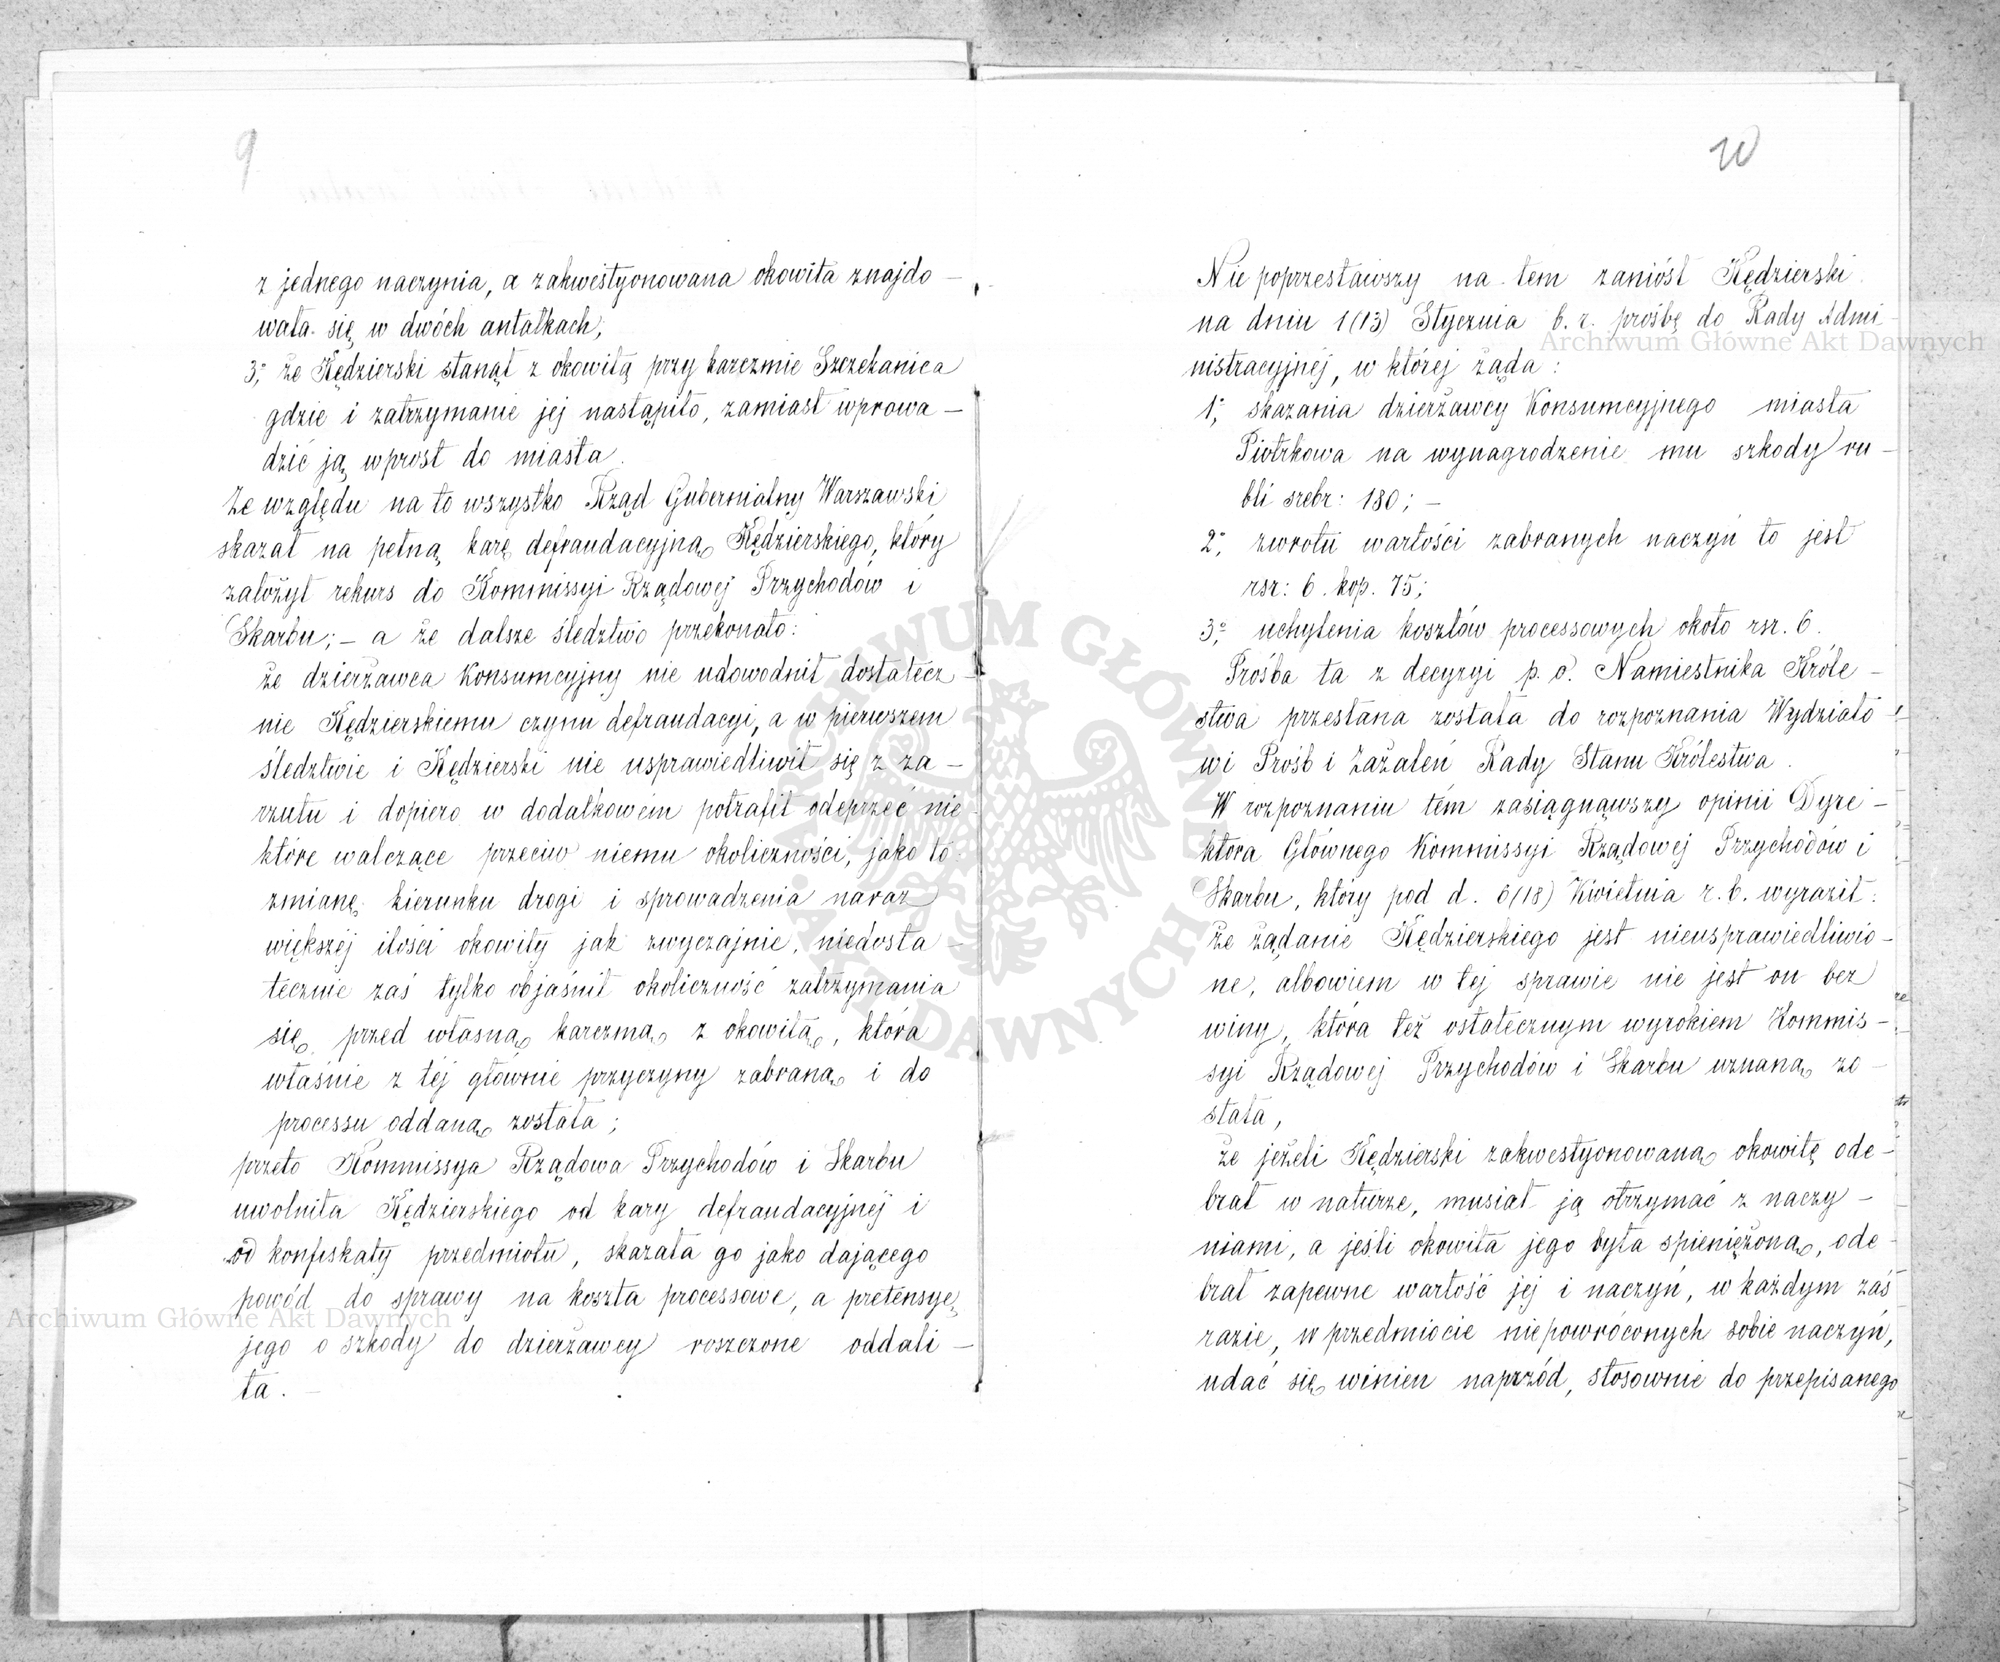 9
z jednego naczynia, a zakwestyonowana okowita znajdo –
wała się w dwóch antałkach;
3; że Kędzierski stanął z okowitą przy karczmie Szczekanica
gdzie i zatrzymanie jej nastąpiło, zamiast wprowa –
dzić ją wprost do miasta.
Ze względu na to wszystko Rząd Gubernialny Warszawski
skazał na pełną karę defraudacyjną Kędzierskiego, który
założył rekurs do Kommissyi Rządowej Przychodów i
Skarbu; – a że dalsze śledztwo przekonało:
że dzierżawca Konsumcyjny nie udowodnił dostatecz –
nie Kędzierskiemu czynu defraudacyi, a w pierwszem
śledztwie i Kędzierski nie usprawiedliwił się z za –
rzutu i dopiero w dodatkowém potrafił odeprzeć nie –
które walczące przeciw niemu okoliczności, jako to:
zmianę kierunku drogi i sprowadzenia naraz
większéj ilości okowity jak zwyczajnie, niedosta –
tecznie zaś tylko objaśnił okoliczność zatrzymania
się przed własną karczmą z okowitą, która
właśnie z téj głównie przyczyny zabraną i do
processu oddaną została;
przeto Kommissya Rządowa Przychodów i Skarbu
uwolniła Kędzierskiego od kary defraudacyjnéj i
od konfiskaty przedmiotu, skazała go jako dającego
powód do sprawy na koszta processowe, a pretensyę
jego o szkody do dzierżawcy roszczone oddali –
ła. –
10
Nie poprzestawszy na tem zaniósł Kędzierski
na dniu 1(13) Stycznia b. r. prośbę do Rady Admi –
nistracyjnéj, w któréj żąda:
1; skazania dzierżawcy Konsumcyjnego miasta
Piotrkowa na wynagrodzenie mu szkody ru –
bli srebr: 180; –
2; zwrotu wartości zabranych naczyń to jest
rsr: 6. kop. 75;
3; uchylenia kosztów processowych około rsr. 6.
Prośba ta z decyzyi p. o. Namiestnika Króle –
stwa przesłana została do rozpoznania Wydziało
wi Próśb i Zażaleń Rady Stanu Królestwa.
W rozpoznaniu tém zasiągnąwszy opinii Dyre –
ktora Głównego Kommissyi Rządowej Przychodów i
Skarbu, który pod d. 6/18) Kwietnia r. b. wyraził:
że żądanie Kędzierskiego jest nieusprawiedliwio –
ne, albowiem w tej sprawie nie jest on bez
winy, która też ostatecznym wyrokiem Kommis –
syi Rządowej Przychodów i Skarbu uznaną zo –
stała,
że jeżeli Kędzierski zakwestyonowaną okowitę ode –
brał w naturze, musiał ją otrzymać z naczy –
niami, a jeśli okowita jego była spieniężoną, ode –
brał zapewne wartość jéj i naczyń, w każdym zaś
razie, w przedmiocie niepowróconych sobie naczyń,
udać się winien naprzód, stosownie do przepisanego
Archiwum Główne Akt Dawnych
Archiwum Główne Akt Dawnych
ARCHIWUM GŁÓWNE AKT DAWNYCH